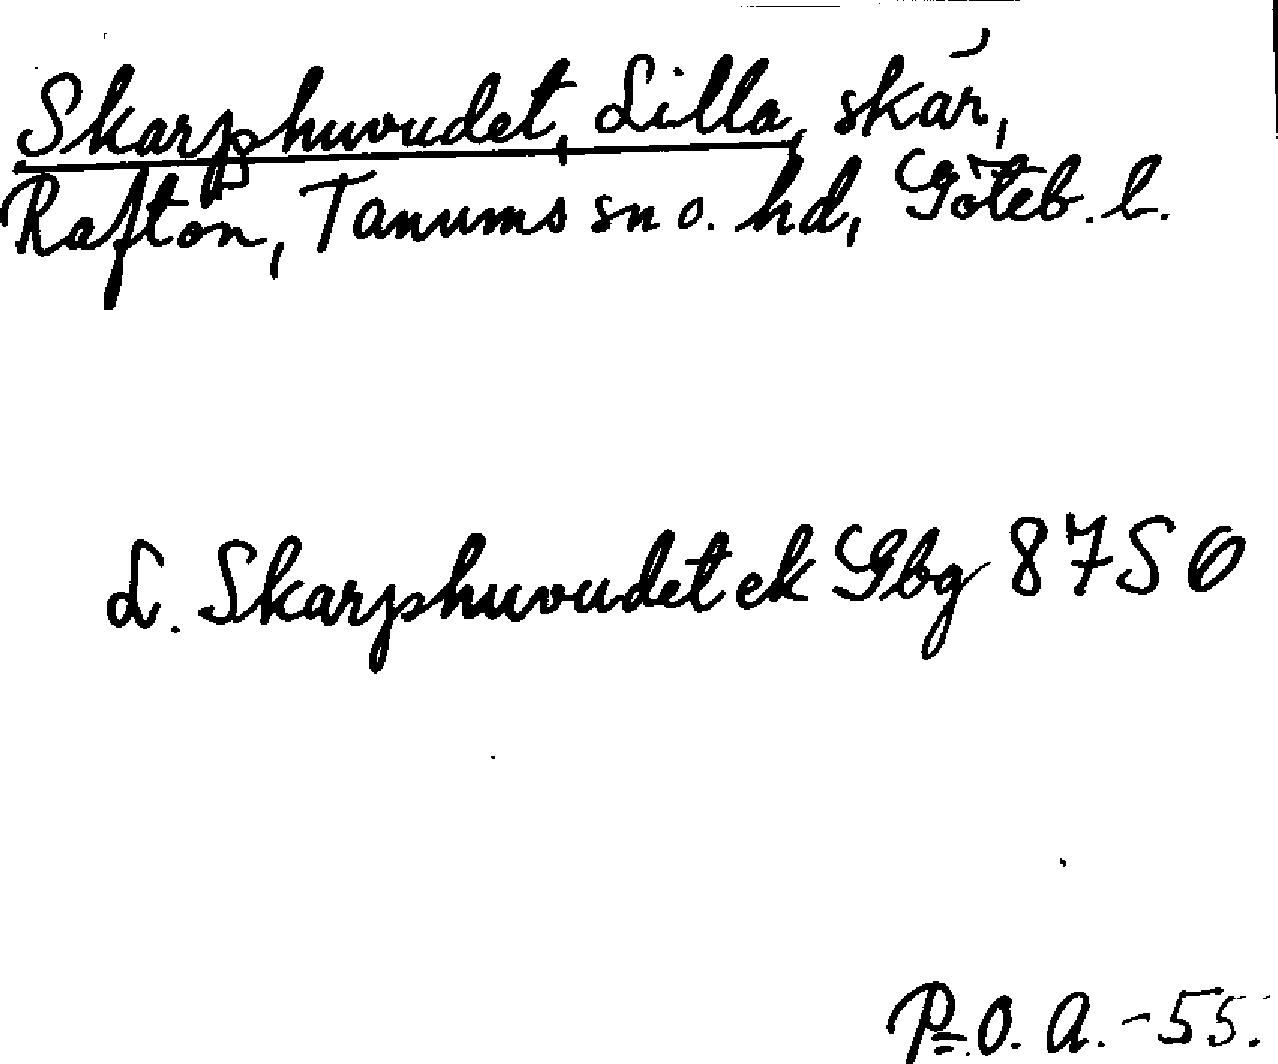 Skarphuvudet, Lilla, skär,
Raftön, Tanums sn o. hd, Göteb. l.
L. Skarphuvudet ek Gbg 8750
P.O.A.-55.